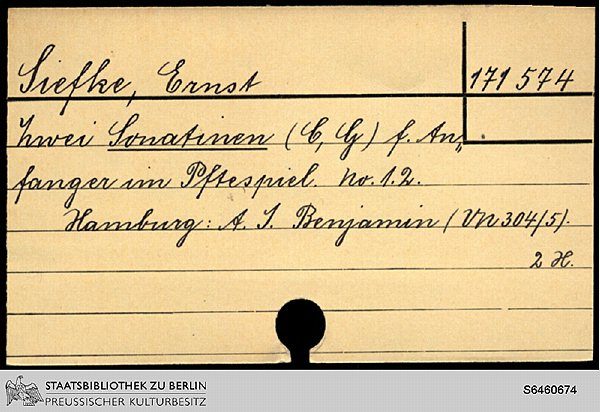 Siefke, Ernst
171 574
Zwei Sonatinen (C, G) f. An„
fänger im Pftespiel. No. 1. 2.
Hamburg: A. J. Benjamin (VN 304/5).
2 H.
STAATSBIBLIOTHEK ZU BERLIN
PREUSSISCHER KULTURBESITZ
S6460674